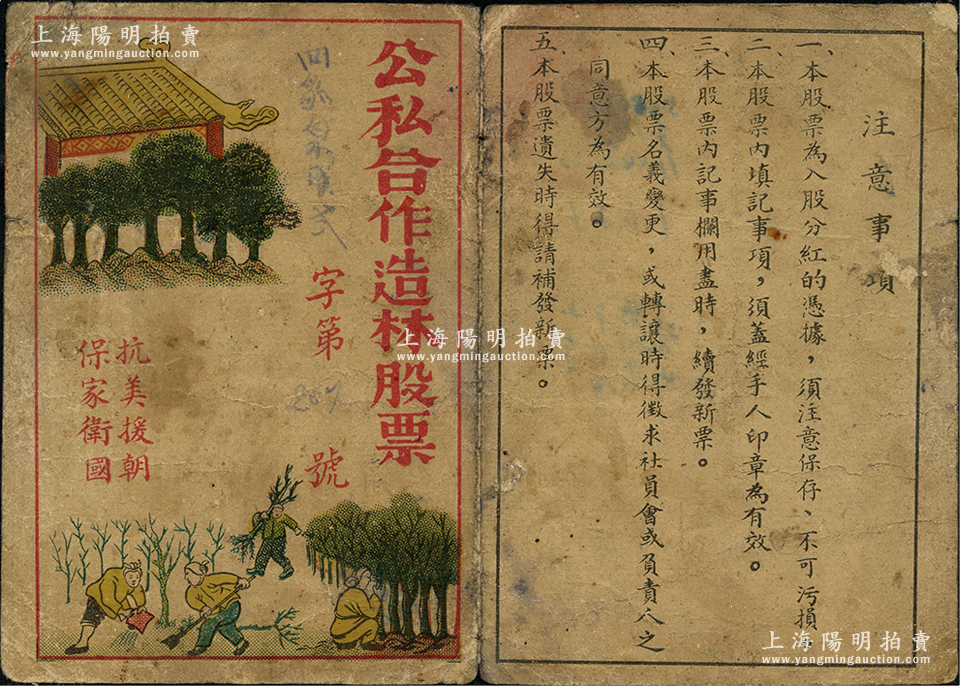 上海陽明拍賣
www.yangmingauction.com
公私合作造林股票
字第
號
抗美援朝
保家衛國
注意事項
一、本股票為入股分紅的憑據，須注意保存、不可污損。
二、本股票內填記事項，須蓋經手人印章為有效。
三、本股票內記事欄用盡時，續發新票。
四、本股票名義變更，或轉讓時得徵求社員會或負責人之
同意方為有效。
五、本股票遺失時得請補發新票。
上海陽明拍賣
www.yangmingauction.com
上海陽明拍賣
www.yangmingauction.com